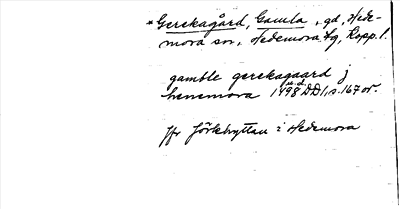 *Gerekagård, Gamla, gd, Hede-
mora sn, Hedemora tg, Kopp. l.
gamble gerekagaard j
henemora 1498 DD1, s. 167 or.
Jfr Jörkhyttan i Hedemora